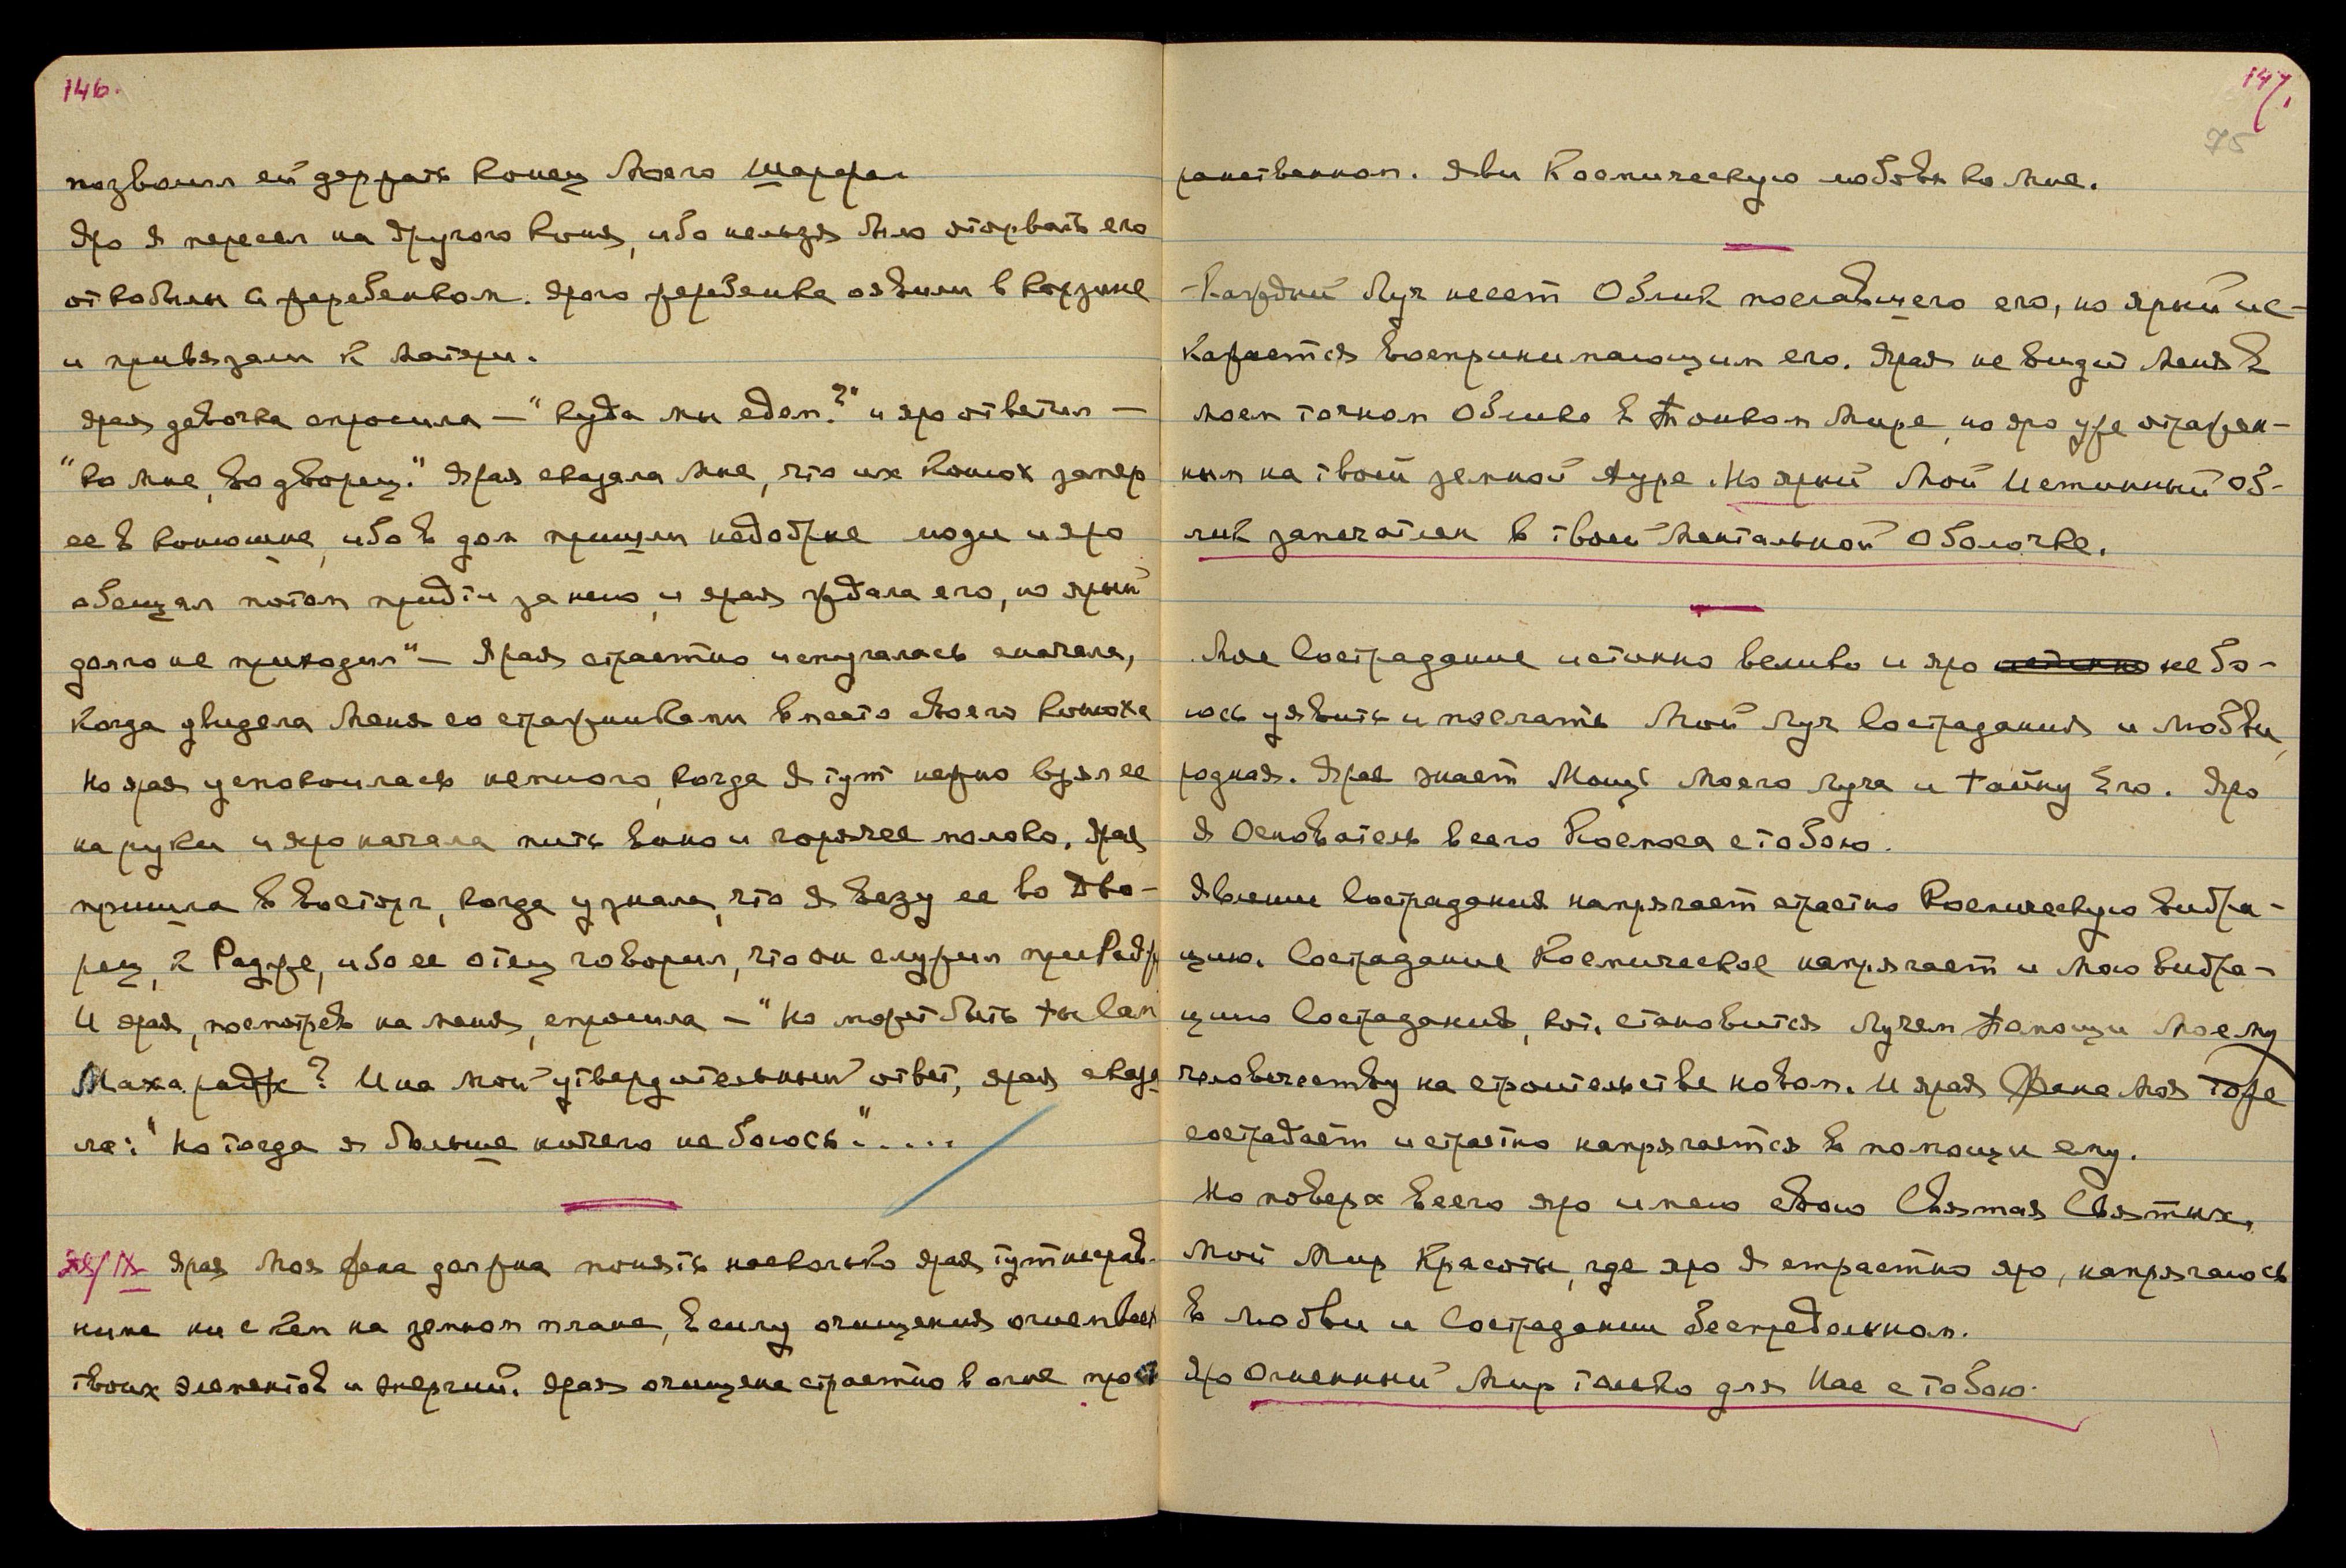 146.
позволил ей держать конец Моего шарфа.
Яро Я пересел на другого коня, ибо нельзя было оторвать его
от кобылы с жеребенком. Ярого жеребенка оявили в корзине
и привязали к матери.
Ярая девочка спросила — "куда мы едем?" и яро ответил —
"ко мне, во дворец." Ярая сказала Мне, что их конюх запер
ее в конюшне, ибо в дом пришли недобрые люди и яро
обещал потом придти за нею, и ярая ждала его, но ярый
долго не приходил" — Ярая страстно испугалась сначала,
когда увидела Меня со стражниками вместо своего конюха
но ярая успокоилась немного, когда Я тут нежно взял ее
на руки и яро начала пить вино и горячее молоко. Ярая
пришла в восторг, когда узнала, что Я везу ее во Дво-
рец, к Радже, ибо ее отец говорил, что он служил при Радже
И ярая, посмотрев на меня, спросила — "Но может быть ты Сам
Махараджа? И на мой утвердительный ответ, ярая сказа
ла: "Но тогда я больше ничего не боюсь"....
/IX Ярая Моя Жена должна понять насколько ярая тут несрав-
нима ни с кем на земном плане, в силу очищения огнем всех
твоих элементов и энергий. Ярая очищена страстно в огне прост
147.
75
ранственном. Яви Космическую любовь ко Мне.
Каждый Луч несет Облик пославшего его, но ярый ис-
кажается воспринимающим его. Ярая не видит Меня в
моем точном Облике в Тонком Мире, но яро уже отражен-
ным на твоей земной Ауре. Но ярый Мой Истинный Об-
лик запечатлен в твоей Ментальной Оболочке.
Мое Сострадание истинно велико и яро истинно не бо-
юсь уявить и послать Мой Луч Сострадания и Любви,
родная. Ярая знает Мощь Моего Луча и тайну Его. Яро
Я Основатель всего Космоса с тобою.
Явление Сострадания напрягает страстно Космическую вибра-
цию. Сострадание Космическое напрягает и Мою вибра-
цию Сострадания, кот. становится Лучем Помощи Моему
человечеству на строительстве новом. И ярая Жена Моя тоже
сострадает и страстно напрягается в помощи ему.
Но поверх всего яро имею свою Святая Святых,
Мой Мир Красоты, где яро Я страстно яро, напрягаюсь
в Любви и Сострадании беспредельном.
Яро Огненный Мир только для Нас с тобою.